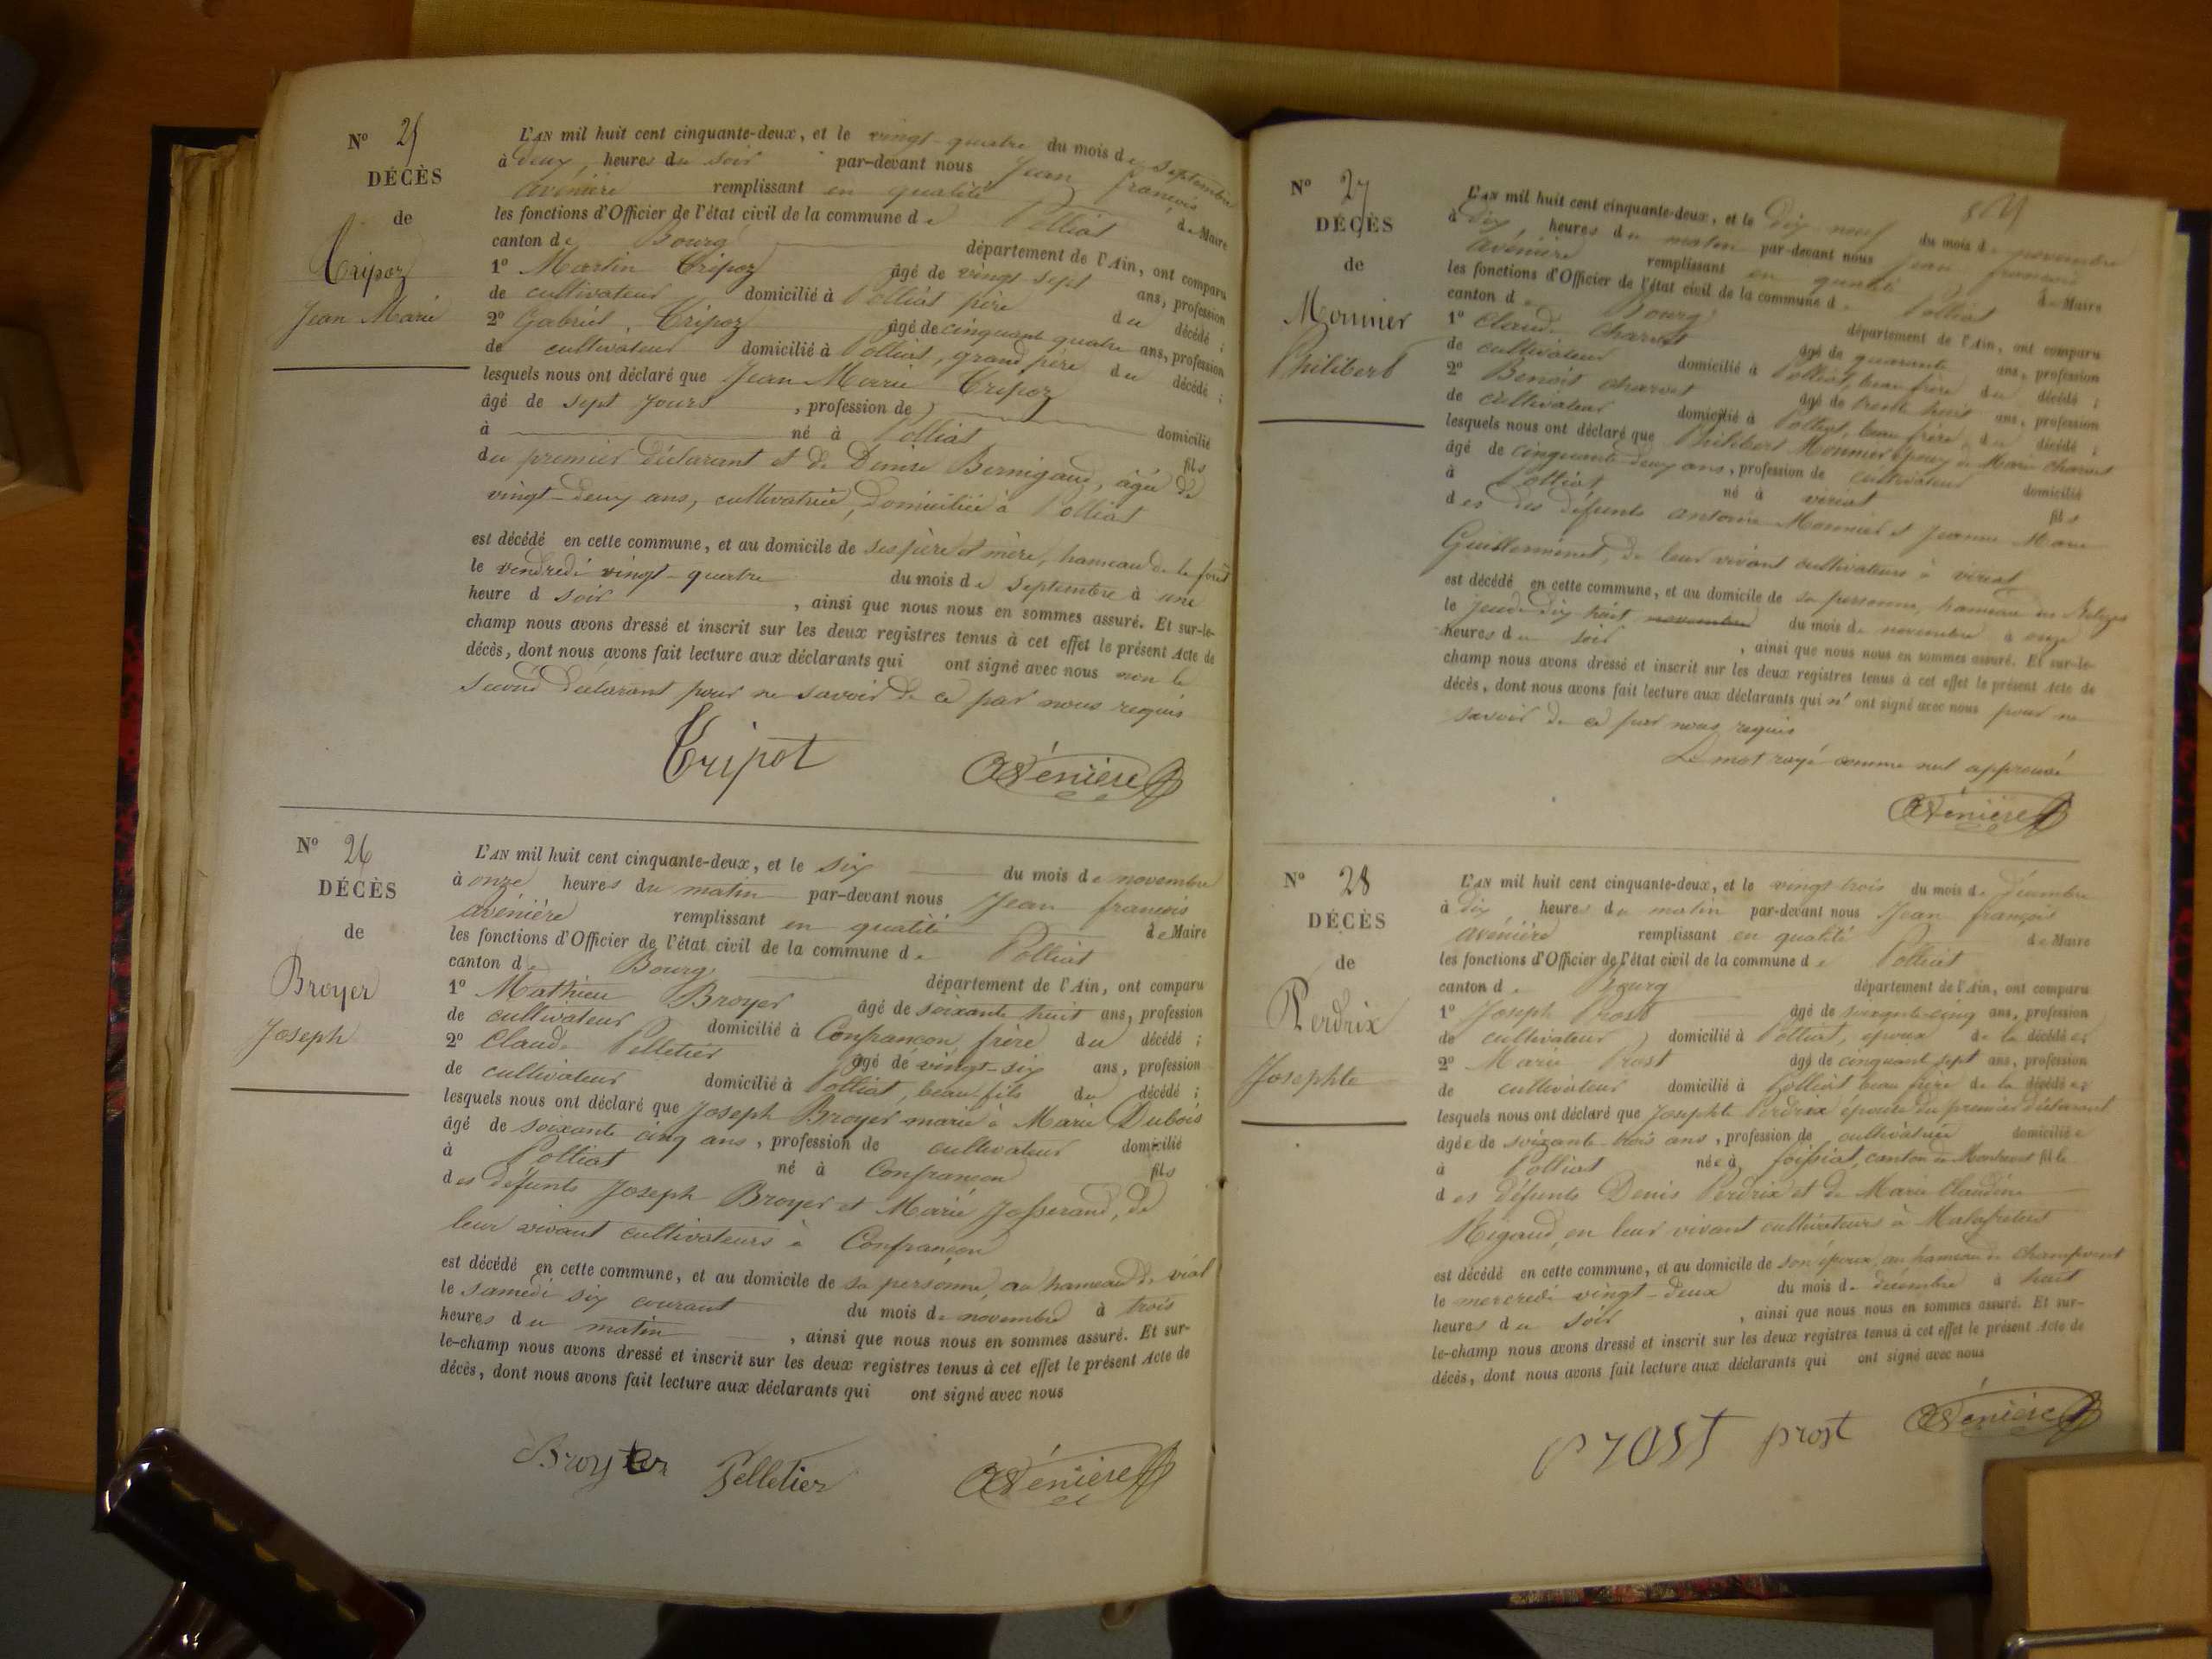 N° 25
DÉCÈS
de
Tripoz
Jean Marie
L'AN mil huit cent cinquante-deux, et le vingt-quatre du mois de septembre
à deux heures du soir par-devant nous Jean françois
avénière remplissant en qualité de Maire
les fonctions d'Officier de l'état civil de la commune de Polliat
canton de Bourg département de l'Ain, ont comparu
1° Martin Tripoz âgé de vingt sept ans, profession
de cultivateur domicilié à Polliat père du décédé ;
2° Gabriel Tripoz âgé de cinquante quatre ans, profession
de cultivateur domicilié à Polliat, grand père du décédé ;
lesquels nous ont déclaré que Jean Marie Tripoz
âgé de sept jours , profession de domicilié
à né à Polliat fils
du premier déclarant et de Denise Bernigaud, âgée de
vingt-deux ans, cultivatrice, domiciliée à Polliat
est décédé en cette commune, et au domicile de ses père et mère, hameau de la forêt
le vendredi vingt-quatre du mois de septembre à une
heure d soir , ainsi que nous nous en sommes assuré. Et sur-le-
champ nous avons dressé et inscrit sur les deux registres tenus à cet effet le présent Acte de
décès, dont nous avons fait lecture aux déclarants qui ont signé avec nous non le
second déclarant pour ne savoir de ce par nous requis
Tripot Avénière
N° 26
DÉCÈS
de
Broyer
Joseph
L'AN mil huit cent cinquante-deux, et le six du mois de novembre
à onze heures du matin par-devant nous Jean françois
avénière remplissant en qualité de Maire
les fonctions d'Officier de l'état civil de la commune de Polliat
canton de Bourg département de l'Ain, ont comparu
1° Mathieu Broyer âgé de soixante huit ans, profession
de cultivateur domicilié à Confrançon, frère du décédé ;
2° Claude Pelletier âgé de vingt-six ans, profession
de cultivateur domicilié à Polliat, beau-fils du décédé ;
lesquels nous ont déclaré que Joseph Broyer marié à Marie Dubois
âgé de soixante cinq ans, profession de cultivateur domicilié
à Polliat né à Confrançon fils
des défunts Joseph Broyer et Marie Josserand, de
leur vivant cultivateurs à Confrançon
est décédé en cette commune, et au domicile de sa personne, au hameau de vial
le samedi six courant du mois de novembre à trois
heures du matin , ainsi que nous nous en sommes assuré. Et sur-
le-champ nous avons dressé et inscrit sur les deux registres tenus à cet effet le présent Acte de
décès, dont nous avons fait lecture aux déclarants qui ont signé avec nous
Broyer Pelletier Avénière
N° 27
DÉCÈS
de
Monnier
Philibert
L'AN mil huit cent cinquante-deux, et le dix neuf du mois de novembre
à dix heures du matin par-devant nous Jean françois
avénière remplissant en qualité de Maire
les fonctions d'Officier de l'état civil de la commune de Polliat
canton de Bourg département de l'Ain, ont comparu
1° Claude Charvet âgé de quarante ans, profession
de cultivateur domicilié à Polliat, beau frère du décédé ;
2° Benoit Charvet âgé de trente huit ans, profession
de cultivateur domicilié à Polliat, beau frère du décédé ;
lesquels nous ont déclaré que Philibert Monnier époux de Marie Charvet
âgé de cinquante deux ans, profession de cultivateur domicilié
à Polliat né à viriat fils
des des défunts antoine Monnier et Jeanne Marie
Guillerminet, de leur vivant cultivateurs à viriat
est décédé en cette commune, et au domicile de sa personne, hameau
le jeudi dix huit novembre du mois de novembre à onze
heures du soir , ainsi que nous nous en sommes assuré. Et sur-le-
champ nous avons dressé et inscrit sur les deux registres tenus à cet effet le présent Acte de
décès, dont nous avons fait lecture aux déclarants qui n'ont signé avec nous pour ne
savoir de ce par nous requis
Le mot rayé comme nul approuvé
Avénière
N° 28
DÉCÈS
de
Perdrix
Josephte
L'AN mil huit cent cinquante-deux, et le vingt-trois du mois de décembre
à dix heures du matin par-devant nous Jean françois
avénière remplissant en qualité de Maire
les fonctions d'Officier de l'état civil de la commune de Polliat
canton de Bourg département de l'Ain, ont comparu
1° Joseph Prost âgé de soixante-cinq ans, profession
de cultivateur domicilié à Polliat, époux de la décédée ;
2° Marie Prost âgé de cinquante sept ans, profession
de cultivateur domicilié à Polliat beau frère de la décédée
lesquels nous ont déclaré que Josephte Perdrix épouse du premier déclarant
âgée de soixante-trois ans, profession de cultivatrice domiciliée
à Polliat née à foissiat, canton de Montrevel fille
des défunts Denis Perdrix et de Marie Claudine
Rigaud, en leur vivant cultivateurs à Malafretaz
est décédé en cette commune, et au domicile de son époux, au hameau de Champvent
le mercredi vingt-deux du mois de décembre à huit
heures du soir , ainsi que nous nous en sommes assuré. Et sur-
le-champ nous avons dressé et inscrit sur les deux registres tenus à cet effet le présent Acte de
décès, dont nous avons fait lecture aux déclarants qui ont signé avec nous
Prost prost Avénière